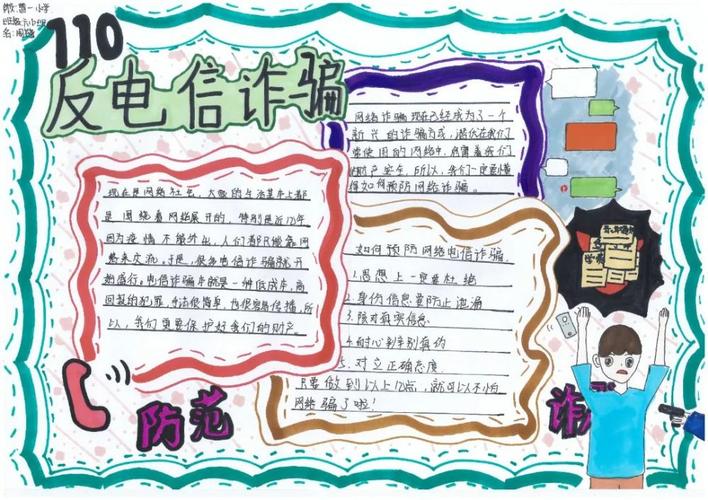 110
反电信诈骗
网络诈骗现在已经成为了一个
新兴的诈骗方式，潜伏在我们
常使用的网络中，危害着我们
财产安全，所以，我们一定要懂
得如何预防网络诈骗。
现在是网络社会，大家的生活基本上都
是围绕着网络展开的，特别是近几年
因为疫情不能外出，人们都只能靠网
络来交流。于是，很多电信诈骗就开
始盛行。电信诈骗本就是一种低成本，高
回报的犯罪，手法很简单，也很容易传播，所
以，我们更要保护好我们的财产。
如何预防网络电信诈骗
1.思想上一定要杜绝
2.身份信息要防止泄漏
3.除对真实信息
4.耐心判别真伪
5.对立正确态度
只要做到以上几点，就可以不怕
网络骗了啦！
防范
诈